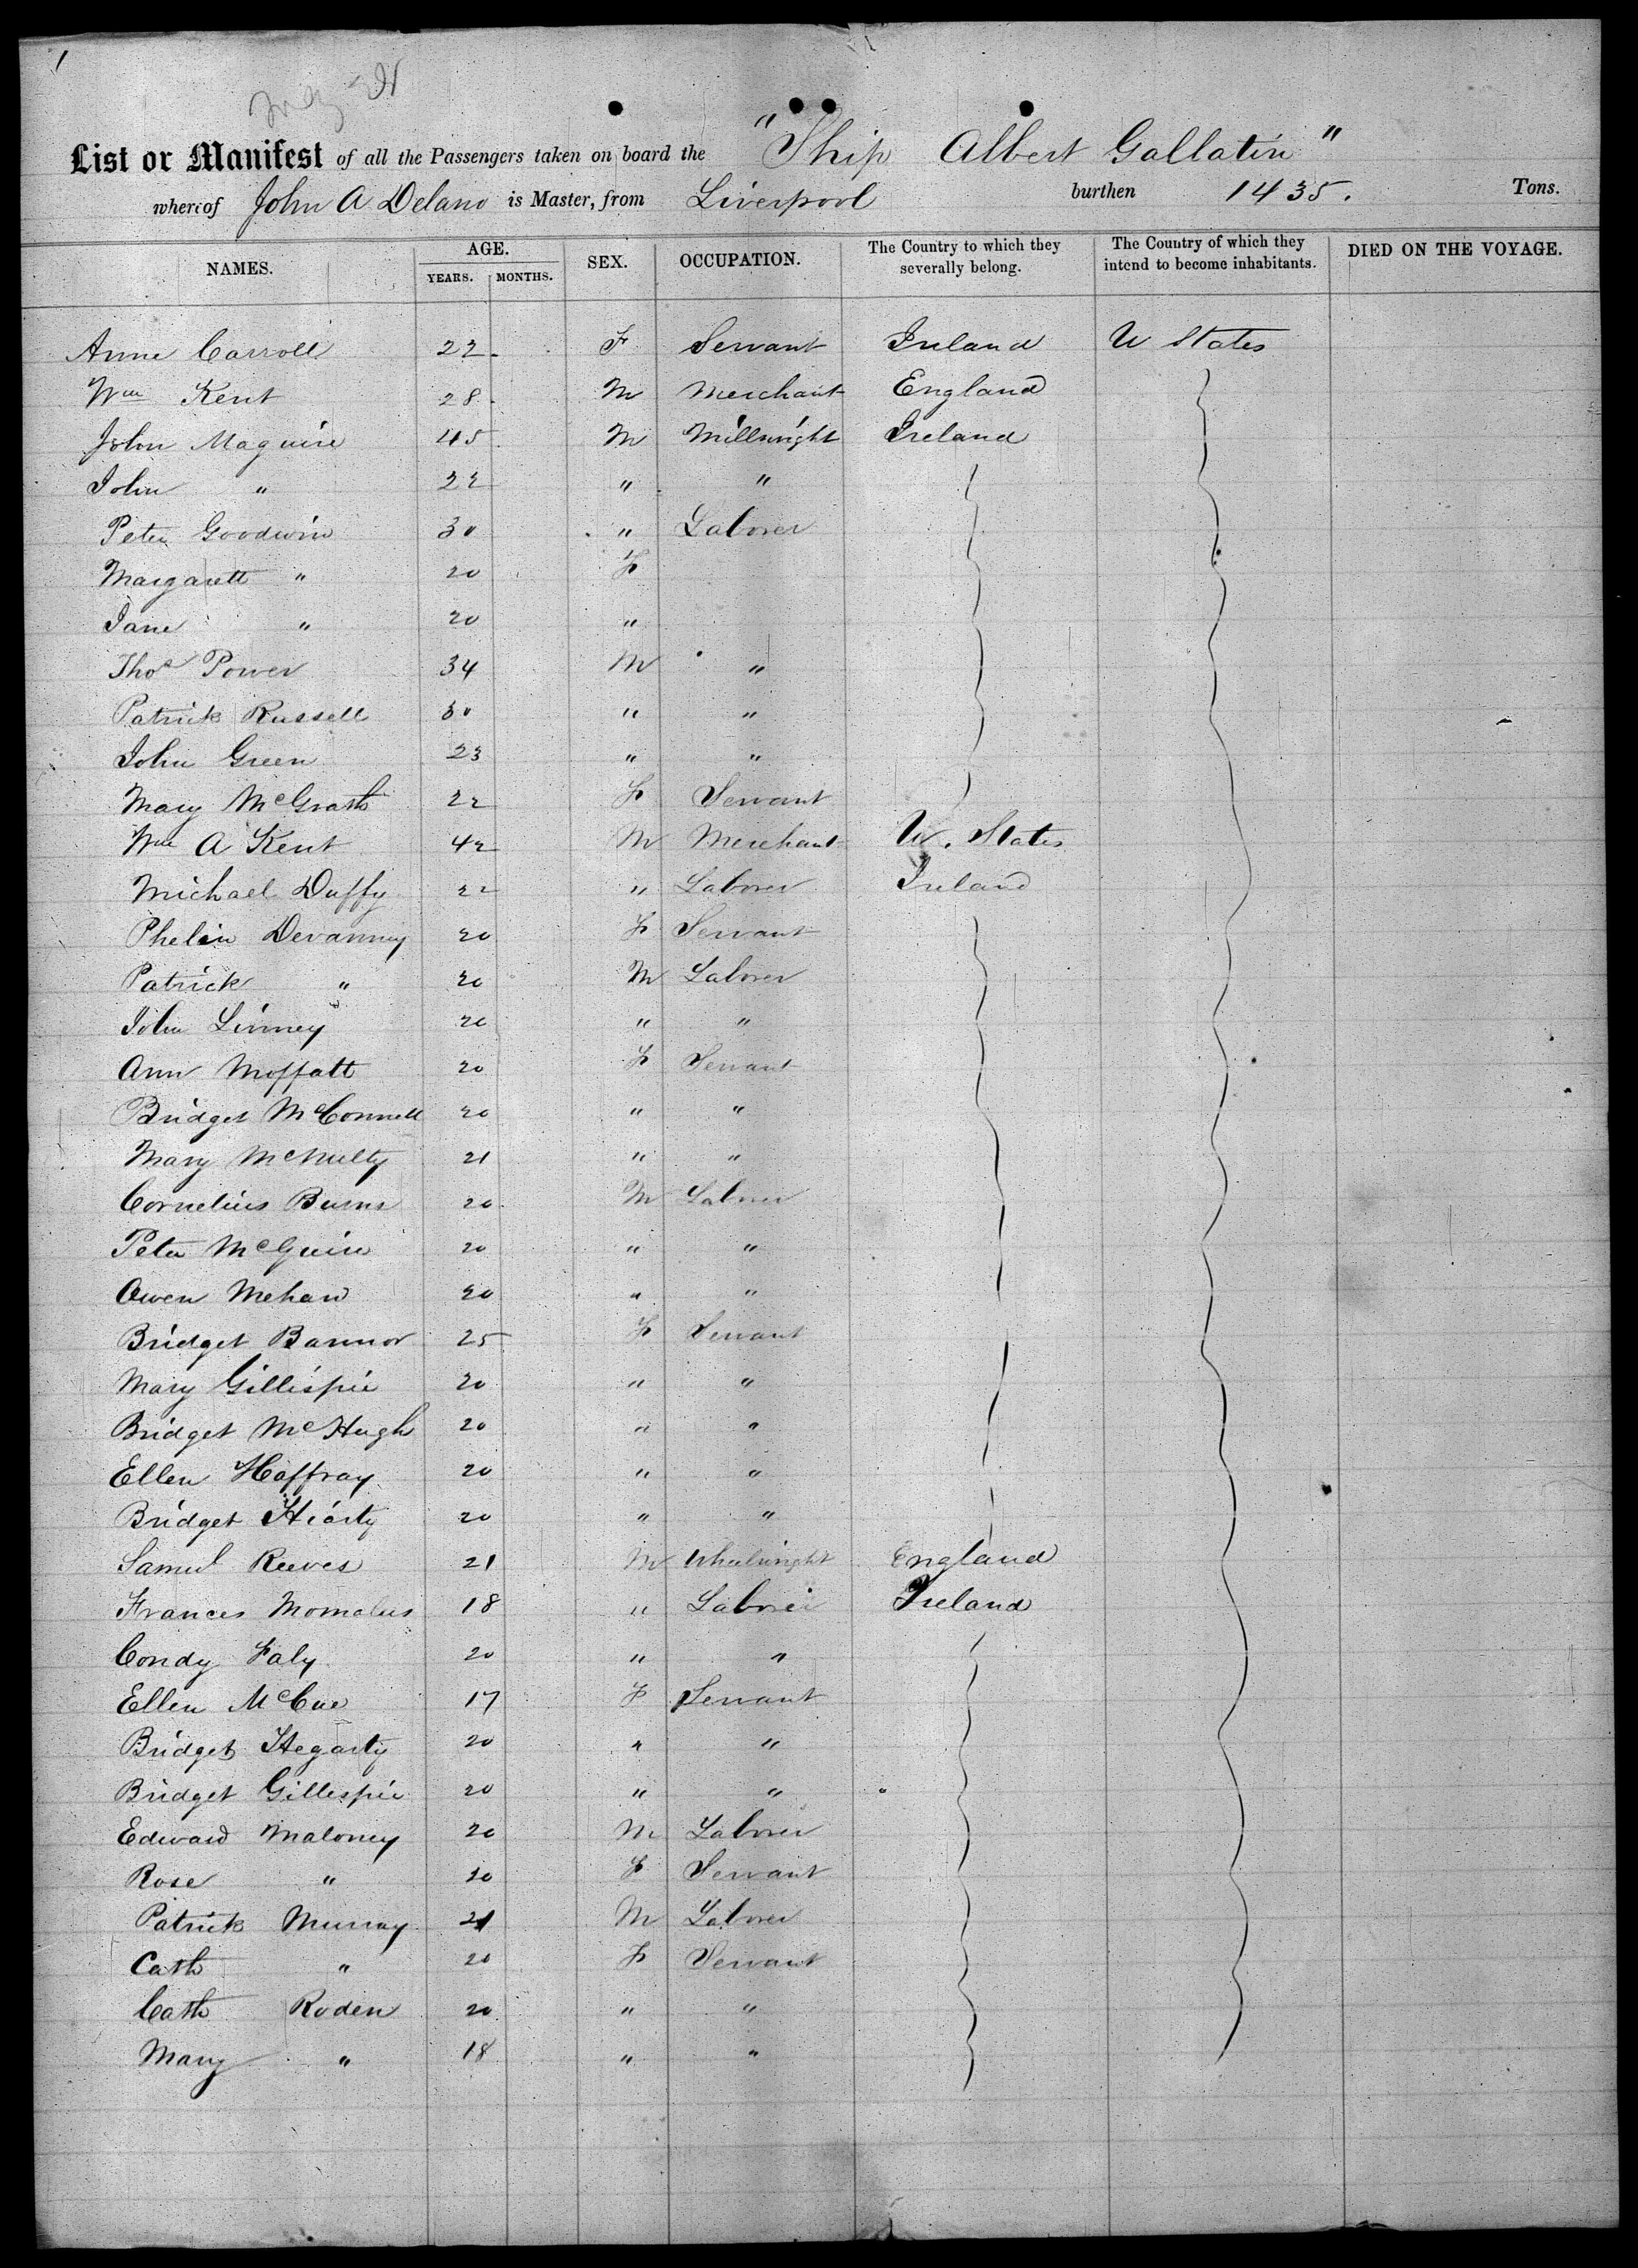 1
May 21
List or Manifest of all the Passengers taken on board the "Ship Albert Gallatin"
whereof John A Delano is Master, from Liverpool burthen 1435. Tons.
NAMES. AGE. YEARS. MONTHS. SEX. OCCUPATION. The Country to which they severally belong. The Country of which they intend to become inhabitants. DIED ON THE VOYAGE.
Anne Carroll 22 F Servant Ireland U States
Wm Kent 28 M Merchant England
John Maguire 45 M Millwright Ireland
John " 22 " "
Peter Goodwin 30 " Laborer
Margarett " 20 F
Jane " 20 "
Thos Power 34 M "
Patrick Russell 30 " "
John Green 23 " "
Mary McGrath 22 F Servant
Wm A Kent 42 M Merchant U. States
Michael Duffy 22 " Laborer Ireland
Phelin Devanney 20 F Servant
Patrick " 20 M Laborer
John Linney 20 " "
Ann Moffatt 20 F Servant
Bridget McConnell 20 " "
Mary McNulty 21 " "
Cornelius Burns 20 M Laborer
Peter McGuire 20 " "
Owen Mehan 20 " "
Bridget Bannon 25 F Servant
Mary Gillispie 20 " "
Bridget McHugh 20 " "
Ellen Haffray 20 " "
Bridget Hiarty 20 " "
Samul Reeves 21 M Wheelwright England
Frances Momolus 18 " Laborer Ireland
Condy Faly 20 " "
Ellen McCue 17 F Servant
Bridget Hegarty 20 " "
Bridget Gillespie 20 " " "
Edward Maloney 20 M Laborer
Rose " 20 F Servant
Patrick Murray 21 M Laborer
Cath " 20 F Servant
Cath Roden 20 " "
Mary " 18 " "